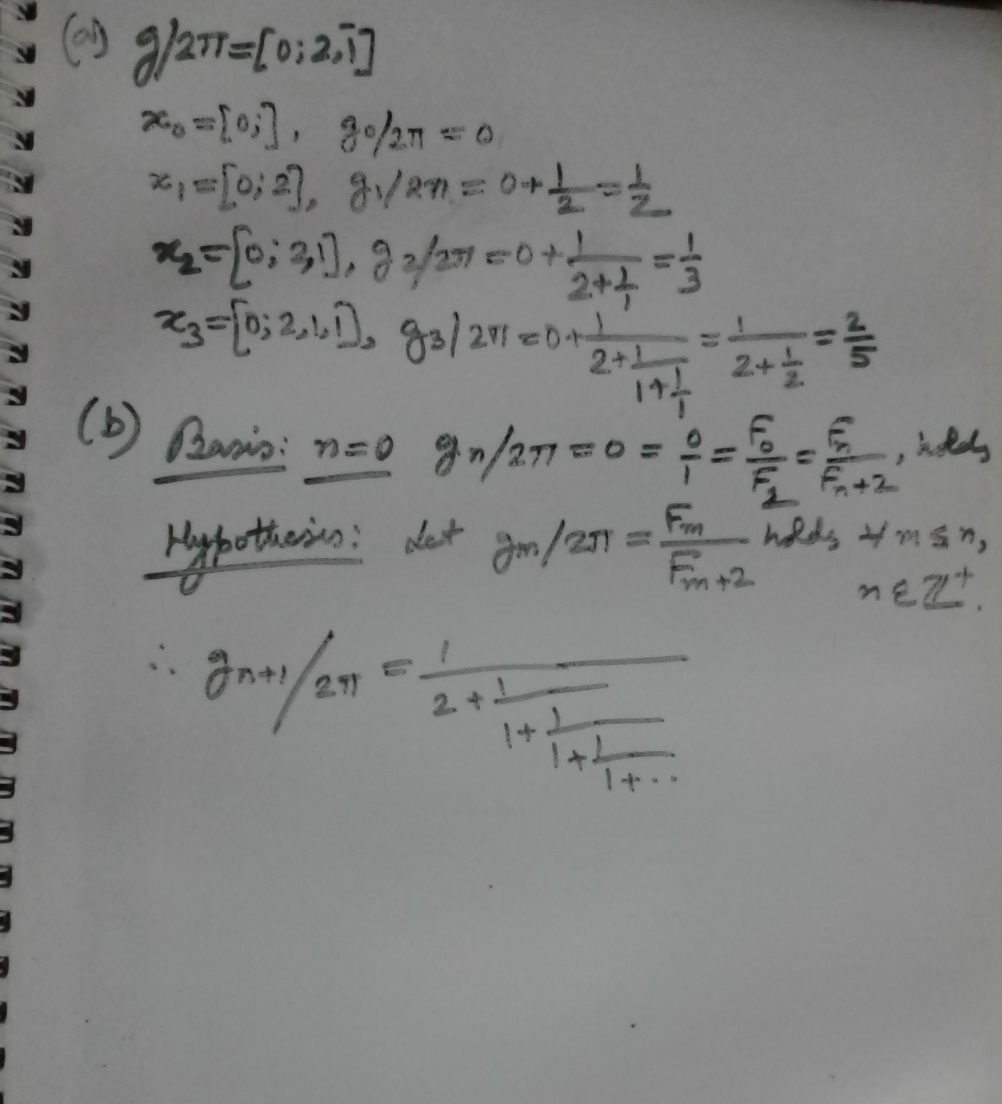 (a) g/2π=[0;2,1̄]
x₀=[0;], g₀/2π = 0
x₁=[0;2], g₁/2π = 0+1/2=1/2
x₂=[0;2,1], g₂/2π=0+1/(2+1/1)=1/3
x₃=[0;2,1,1], g₃/2π=0+1/(2+1/(1+1/1))=1/(2+1/2)=2/5
(b) Basis: n=0 gₙ/2π=0=0/1=F₀/F₂=Fₙ/Fₙ₊₂, holds
Hypothesis: Let gₘ/2π=Fₘ/Fₘ₊₂ holds ∀ m≤n,
n∈ℤ⁺.
∴ gₙ₊₁/2π=1/(2+1/(1+1/(1+1/(1+..